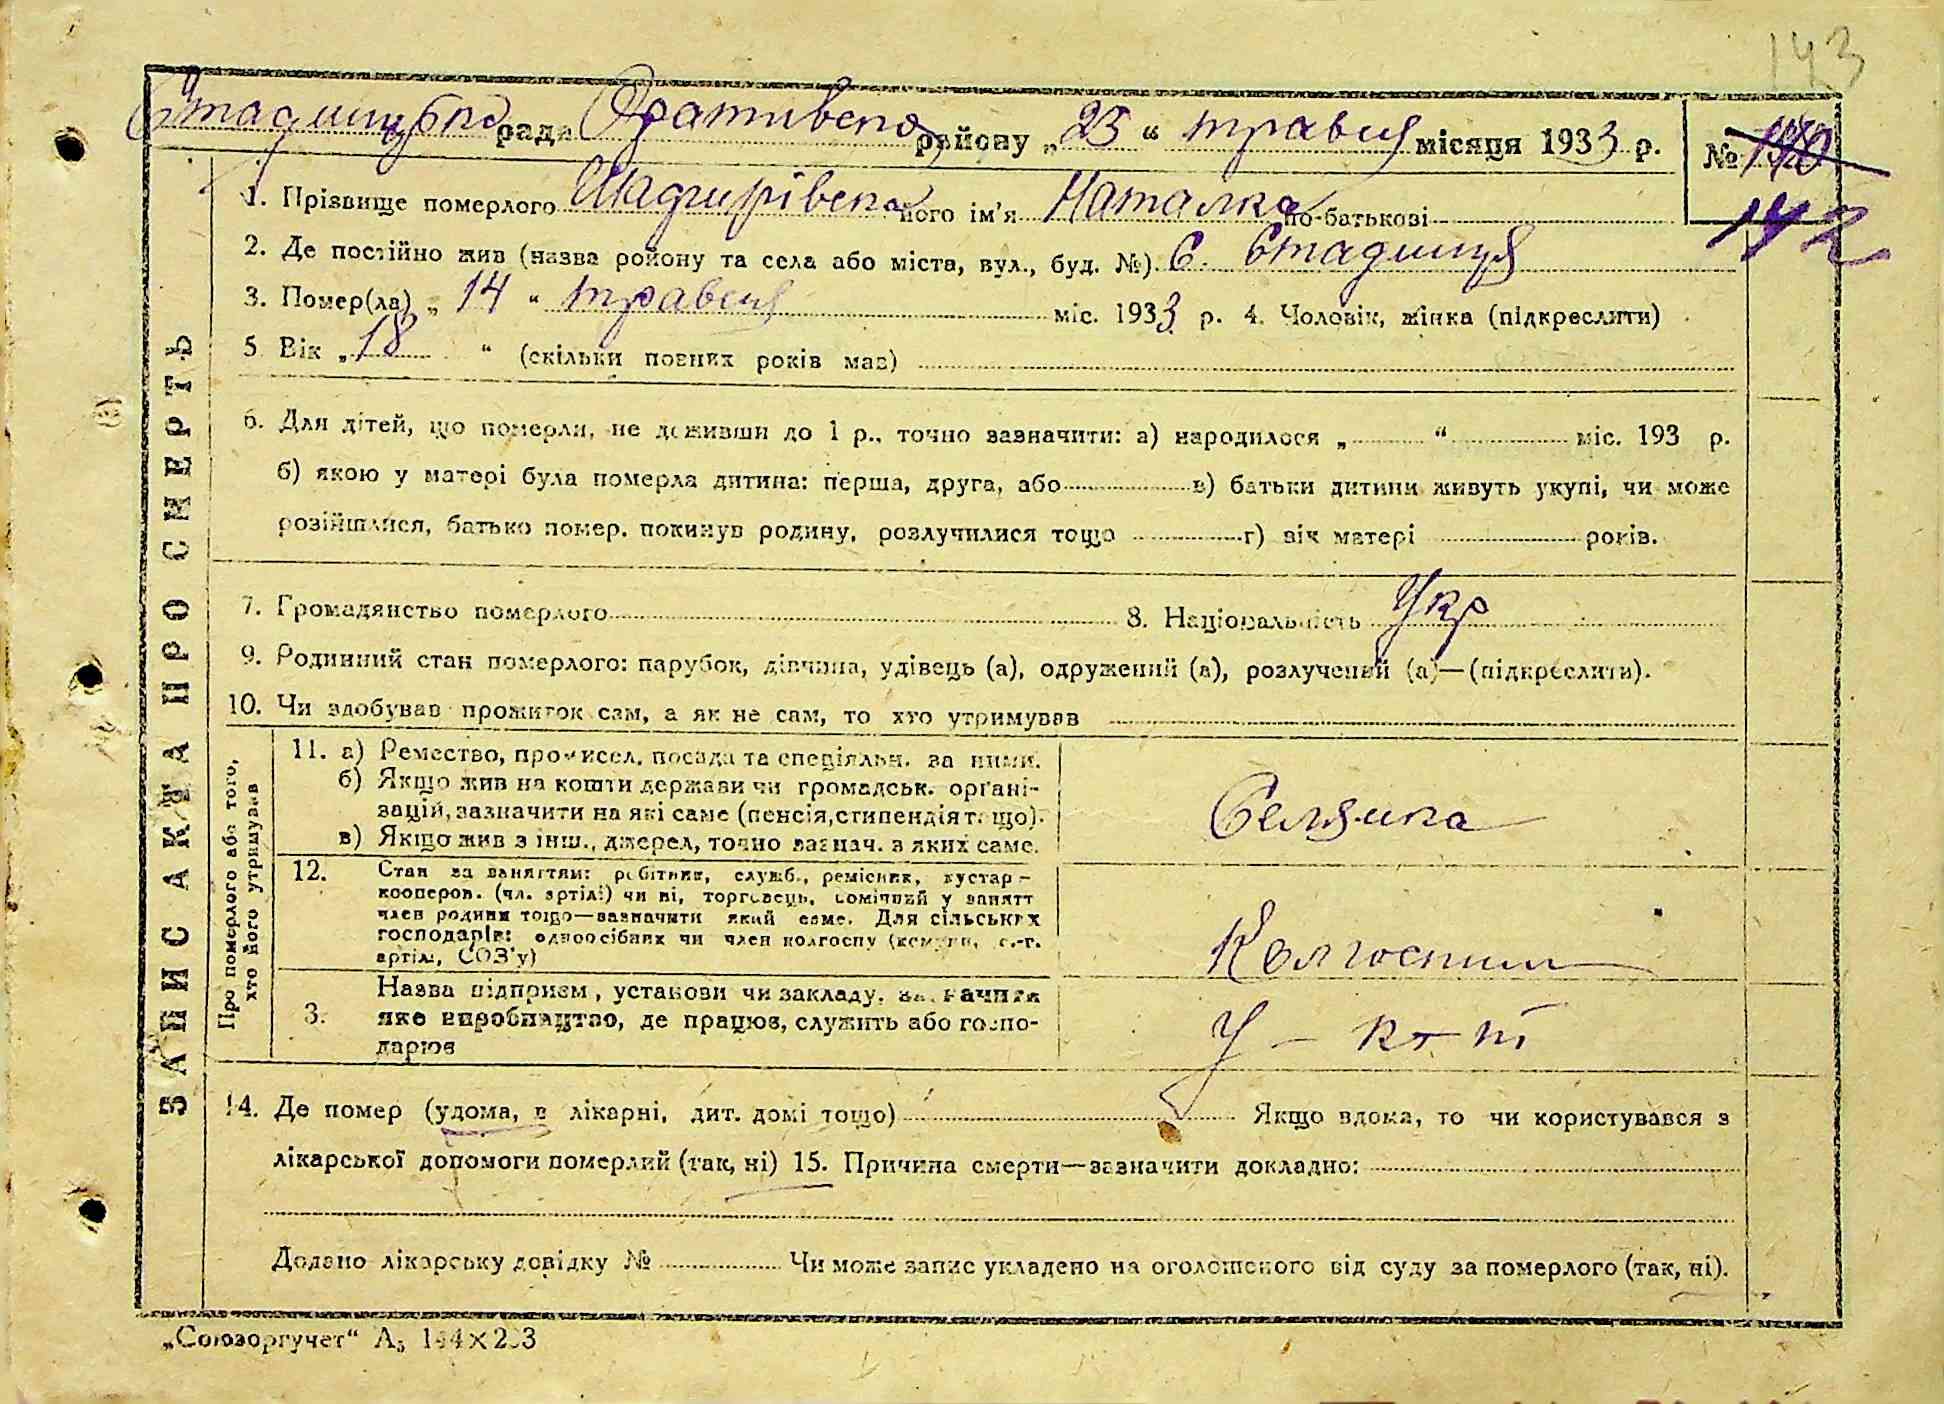 143
рада Оратівська району „ 23 “ травня місяця 1933 р. №
142
1. Прізвище померлого його ім'я Наталка по-батькові
2. Де постійно жив (назва ройону та села або міста, вул., буд. №) С. Стадниця
3. Помер(ла) „ 14 “ травня міс. 1933 р. 4. Чоловік, жінка (підкреслити)
5 Вік „ 18 “ (скільки повних років мав)
6. Для дітей, що померли, не доживши до 1 р., точно зазначити: а) народилося „ “ міс. 193 р.
б) якою у матері була померла дитина: перша, друга, або в) батьки дитини живуть укупі, чи може
розійшлися, батько помер, покинув родину, розлучилися тощо г) вік матері років.
7. Громадянство померлого 8. Національність Укр
9. Родинний стан померлого: парубок, дівчина, удівець (а), одружений (а), розлучений (а)—(підкреслити).
10. Чи здобував прожиток сам, а як не сам, то хто утримував
ЗАПИСКА ПРО СМЕРТЬ
Про померлого або того, хто його утримував
11. а) Ремество, промисел, посада та спеціяльн. за ними.
б) Якщо жив на кошти держави чи громадськ. органі-
зацій, зазначити на які саме (пенсія, стипендія тощо).
в) Якщо жив з інш., джерел, точно зазнач. з яких саме.
Селянка
12. Стан за заняттям: робітник, служб., ремісник, кустар-
кооперов. (чл. артілі) чи ні, торговець, помічний у занятт
член родини тощо—зазначити який саме. Для сільських
господарів: одноосібник чи член колгоспу (комуни, с.-г.
артілі, СОЗ'у)
3. Назва підприєм, установи чи закладу, зазначити
яке виробництво, де працює, служить або госпо-
дарює
14. Де помер (удома, в лікарні, дит. домі тощо) Якщо вдома, то чи користувався з
лікарської допомоги померлий (так, ні) 15. Причина смерти—зазначити докладно:
Додано лікарську довідку № Чи може запис укладено на оголошеного від суду за померлого (так, ні).
„Союзоргучет“ А₅